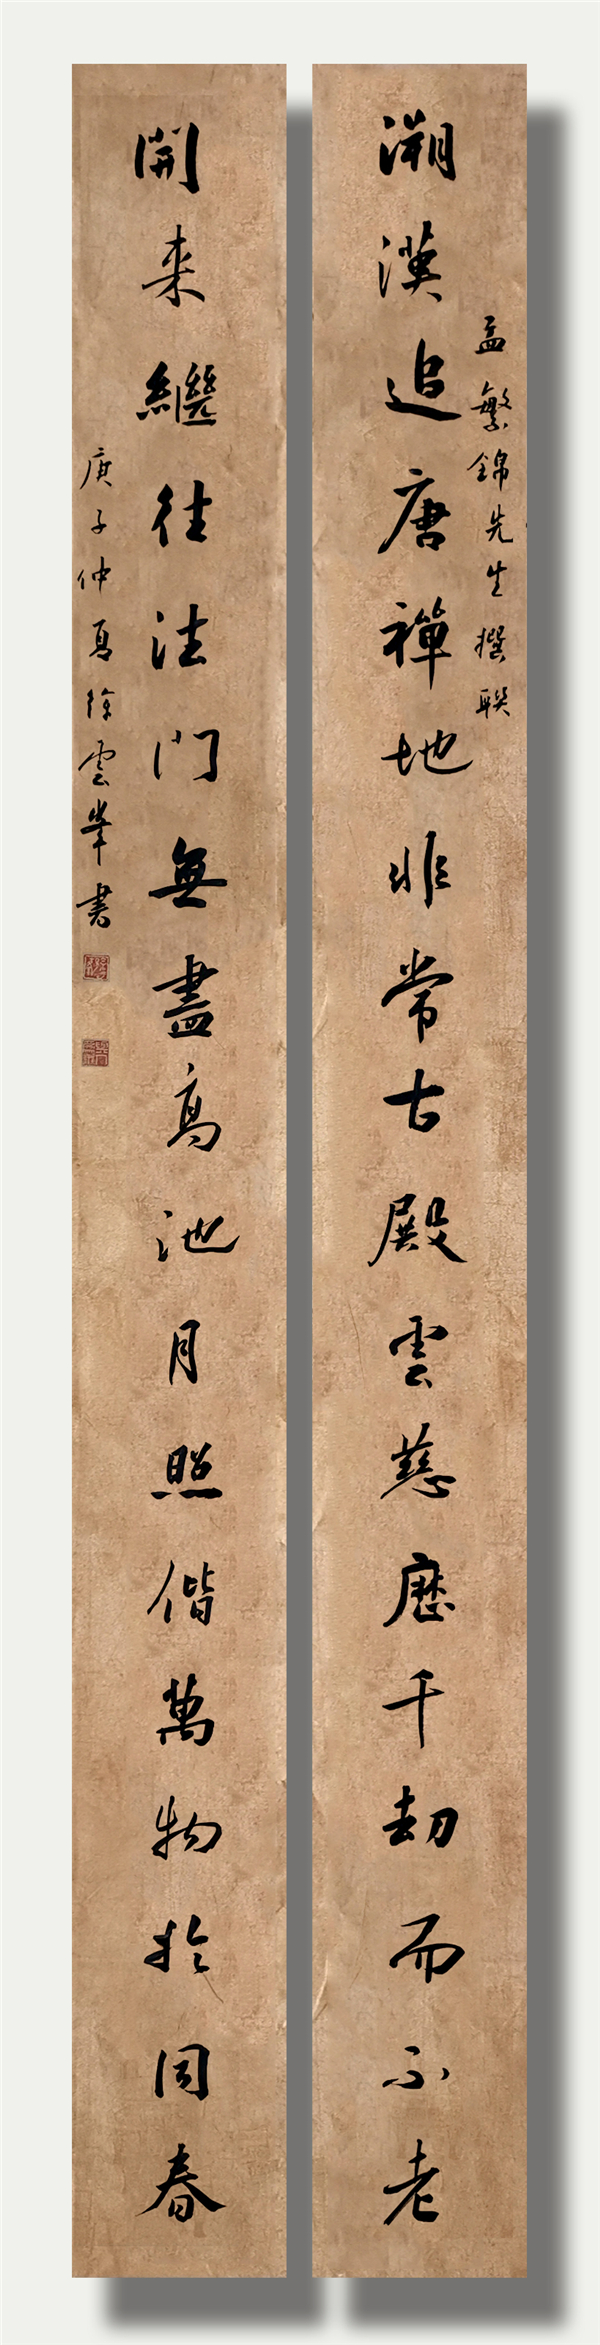 溯漢追唐禪地非常古殿雲慈歷千劫而不老
孟繁錦先生撰联
開来繼往法門無盡高池月照偕萬物於同春
庚子仲夏徐雲峯书